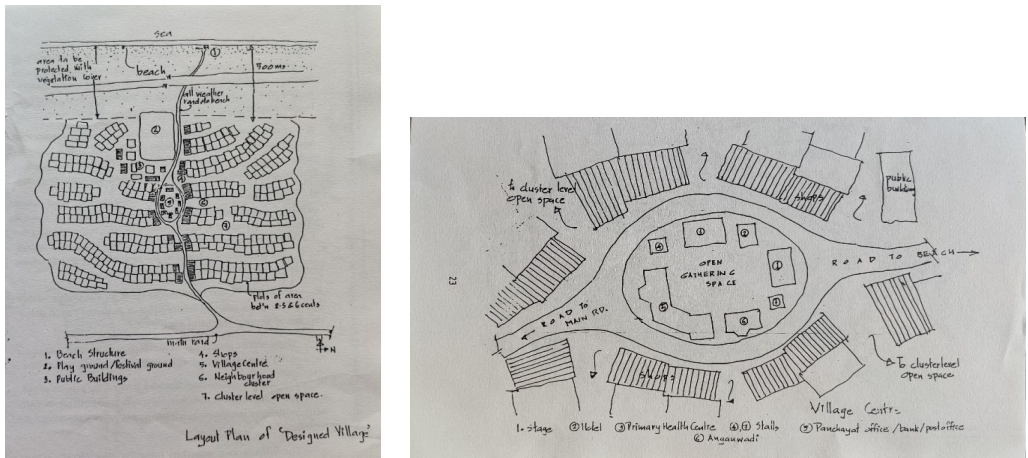 sea
area to be
protected with
vegetation cover
beach
①
500ms
all weather
road to beach
②
③
⑤
⑥
⑦
plots of area
bet'n 2.5 & 6 cents
main road
N
1. Beach Structure
2. Play ground/festival ground
3. Public Buildings
4. Shops
5. Village Centre
6. Neighbourhood
cluster
7. cluster level open space.
Layout Plan of 'Designed Village'
23
To cluster level
open space
shops
public
building
OPEN
GATHERING
SPACE
ROAD TO BEACH
ROAD TO
MAIN RD.
shops
To cluster level
open space
Village Centre
1. Stage ② Hotel ③ Primary Health Centre ④,⑦ Stalls ⑤ Panchayat office/bank/post office
⑥ Anganwadi